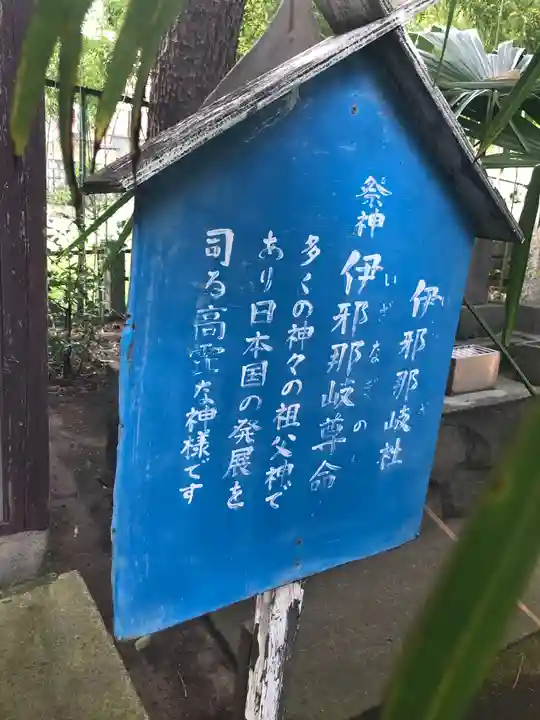 伊邪那岐社
祭神 伊邪那岐尊命
いざなぎの
多くの神々の祖父神で
あり日本国の発展を
司る高霊な神様です